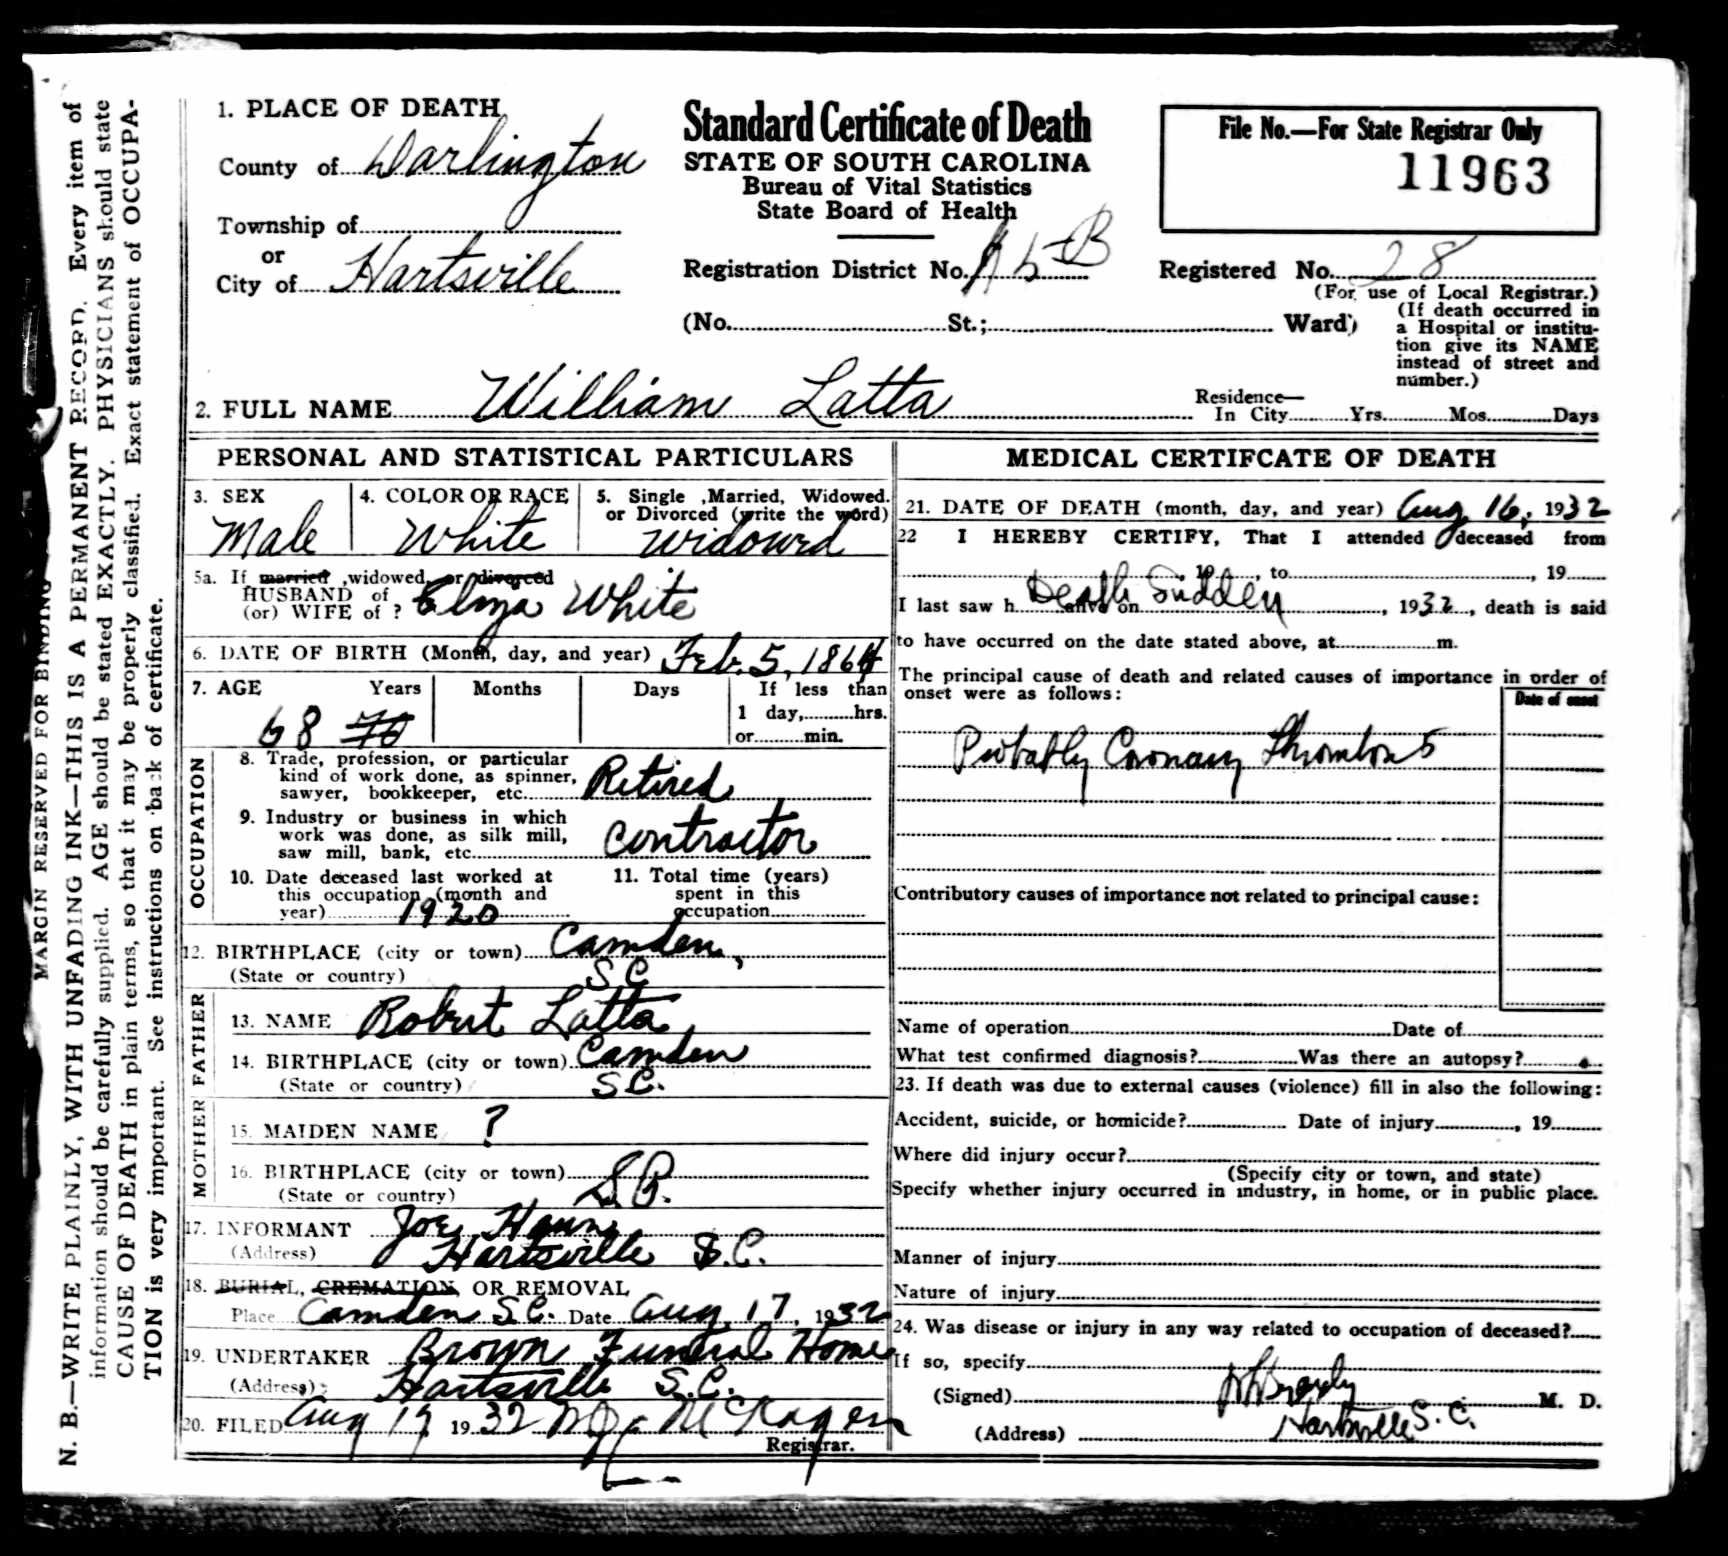 1. PLACE OF DEATH
County of Darlington
Township of
or
City of Hartsville
Standard Certificate of Death
STATE OF SOUTH CAROLINA
Bureau of Vital Statistics
State Board of Health
Registration District No.
(No. St.; Ward)
File No.—For State Registrar Only
11963
Registered No. 28
(For use of Local Registrar.)
(If death occurred in
a Hospital or institu-
tion give its NAME
instead of street and
number.)
2. FULL NAME William Latta
Residence—
In City Yrs. Mos. Days
PERSONAL AND STATISTICAL PARTICULARS
3. SEX
Male
4. COLOR OR RACE
White
5. Single ,Married, Widowed.
or Divorced (write the word)
Widowed
5a. If married ,widowed, or divorced
HUSBAND of
(or) WIFE of ? Eliza White
6. DATE OF BIRTH (Month, day, and year) Feb. 5, 1864
7. AGE Years Months Days If less than
1 day, hrs.
or min.
68 70
OCCUPATION
8. Trade, profession, or particular
kind of work done, as spinner,
sawyer, bookkeeper, etc. Retired
9. Industry or business in which
work was done, as silk mill,
saw mill, bank, etc. Contractor
10. Date deceased last worked at
this occupation (month and
year) 1920
11. Total time (years)
spent in this
occupation
12. BIRTHPLACE (city or town) Camden,
(State or country) S C
FATHER
13. NAME Robert Latta
14. BIRTHPLACE (city or town) Camden
(State or country) S C.
MOTHER
15. MAIDEN NAME ?
16. BIRTHPLACE (city or town)
(State or country) S C.
17. INFORMANT Joe
(Address) Hartsville S.C.
18. BURIAL, CREMATION, OR REMOVAL
Place Camden S.C. Date Aug. 17, 1932
19. UNDERTAKER Brown Funeral Home
(Address) Hartsville S.C.
20. FILED Aug 17 1932
Registrar.
MEDICAL CERTIFCATE OF DEATH
21. DATE OF DEATH (month, day, and year) Aug 16, 1932
22 I HEREBY CERTIFY, That I attended deceased from
, 19 , to , 19
I last saw h alive on Death Sudden , 1932, death is said
to have occurred on the date stated above, at m.
The principal cause of death and related causes of importance in order of
onset were as follows:
Date of onset
Probably Coronary Thrombosis
Contributory causes of importance not related to principal cause:
Name of operation Date of
What test confirmed diagnosis? Was there an autopsy?
23. If death was due to external causes (violence) fill in also the following:
Accident, suicide, or homicide? Date of injury , 19
Where did injury occur?
(Specify city or town, and state)
Specify whether injury occurred in industry, in home, or in public place.
Manner of injury
Nature of injury
24. Was disease or injury in any way related to occupation of deceased?
If so, specify
(Signed) M. D.
(Address) Hartsville S. C.
MARGIN RESERVED FOR BINDING
N. B.—WRITE PLAINLY, WITH UNFADING INK—THIS IS A PERMANENT RECORD. Every item of
information should be carefully supplied. AGE should be stated EXACTLY. PHYSICIANS should state
CAUSE OF DEATH in plain terms, so that it may be properly classified. Exact statement of OCCUPA-
TION is very important. See instructions on back of certificate.